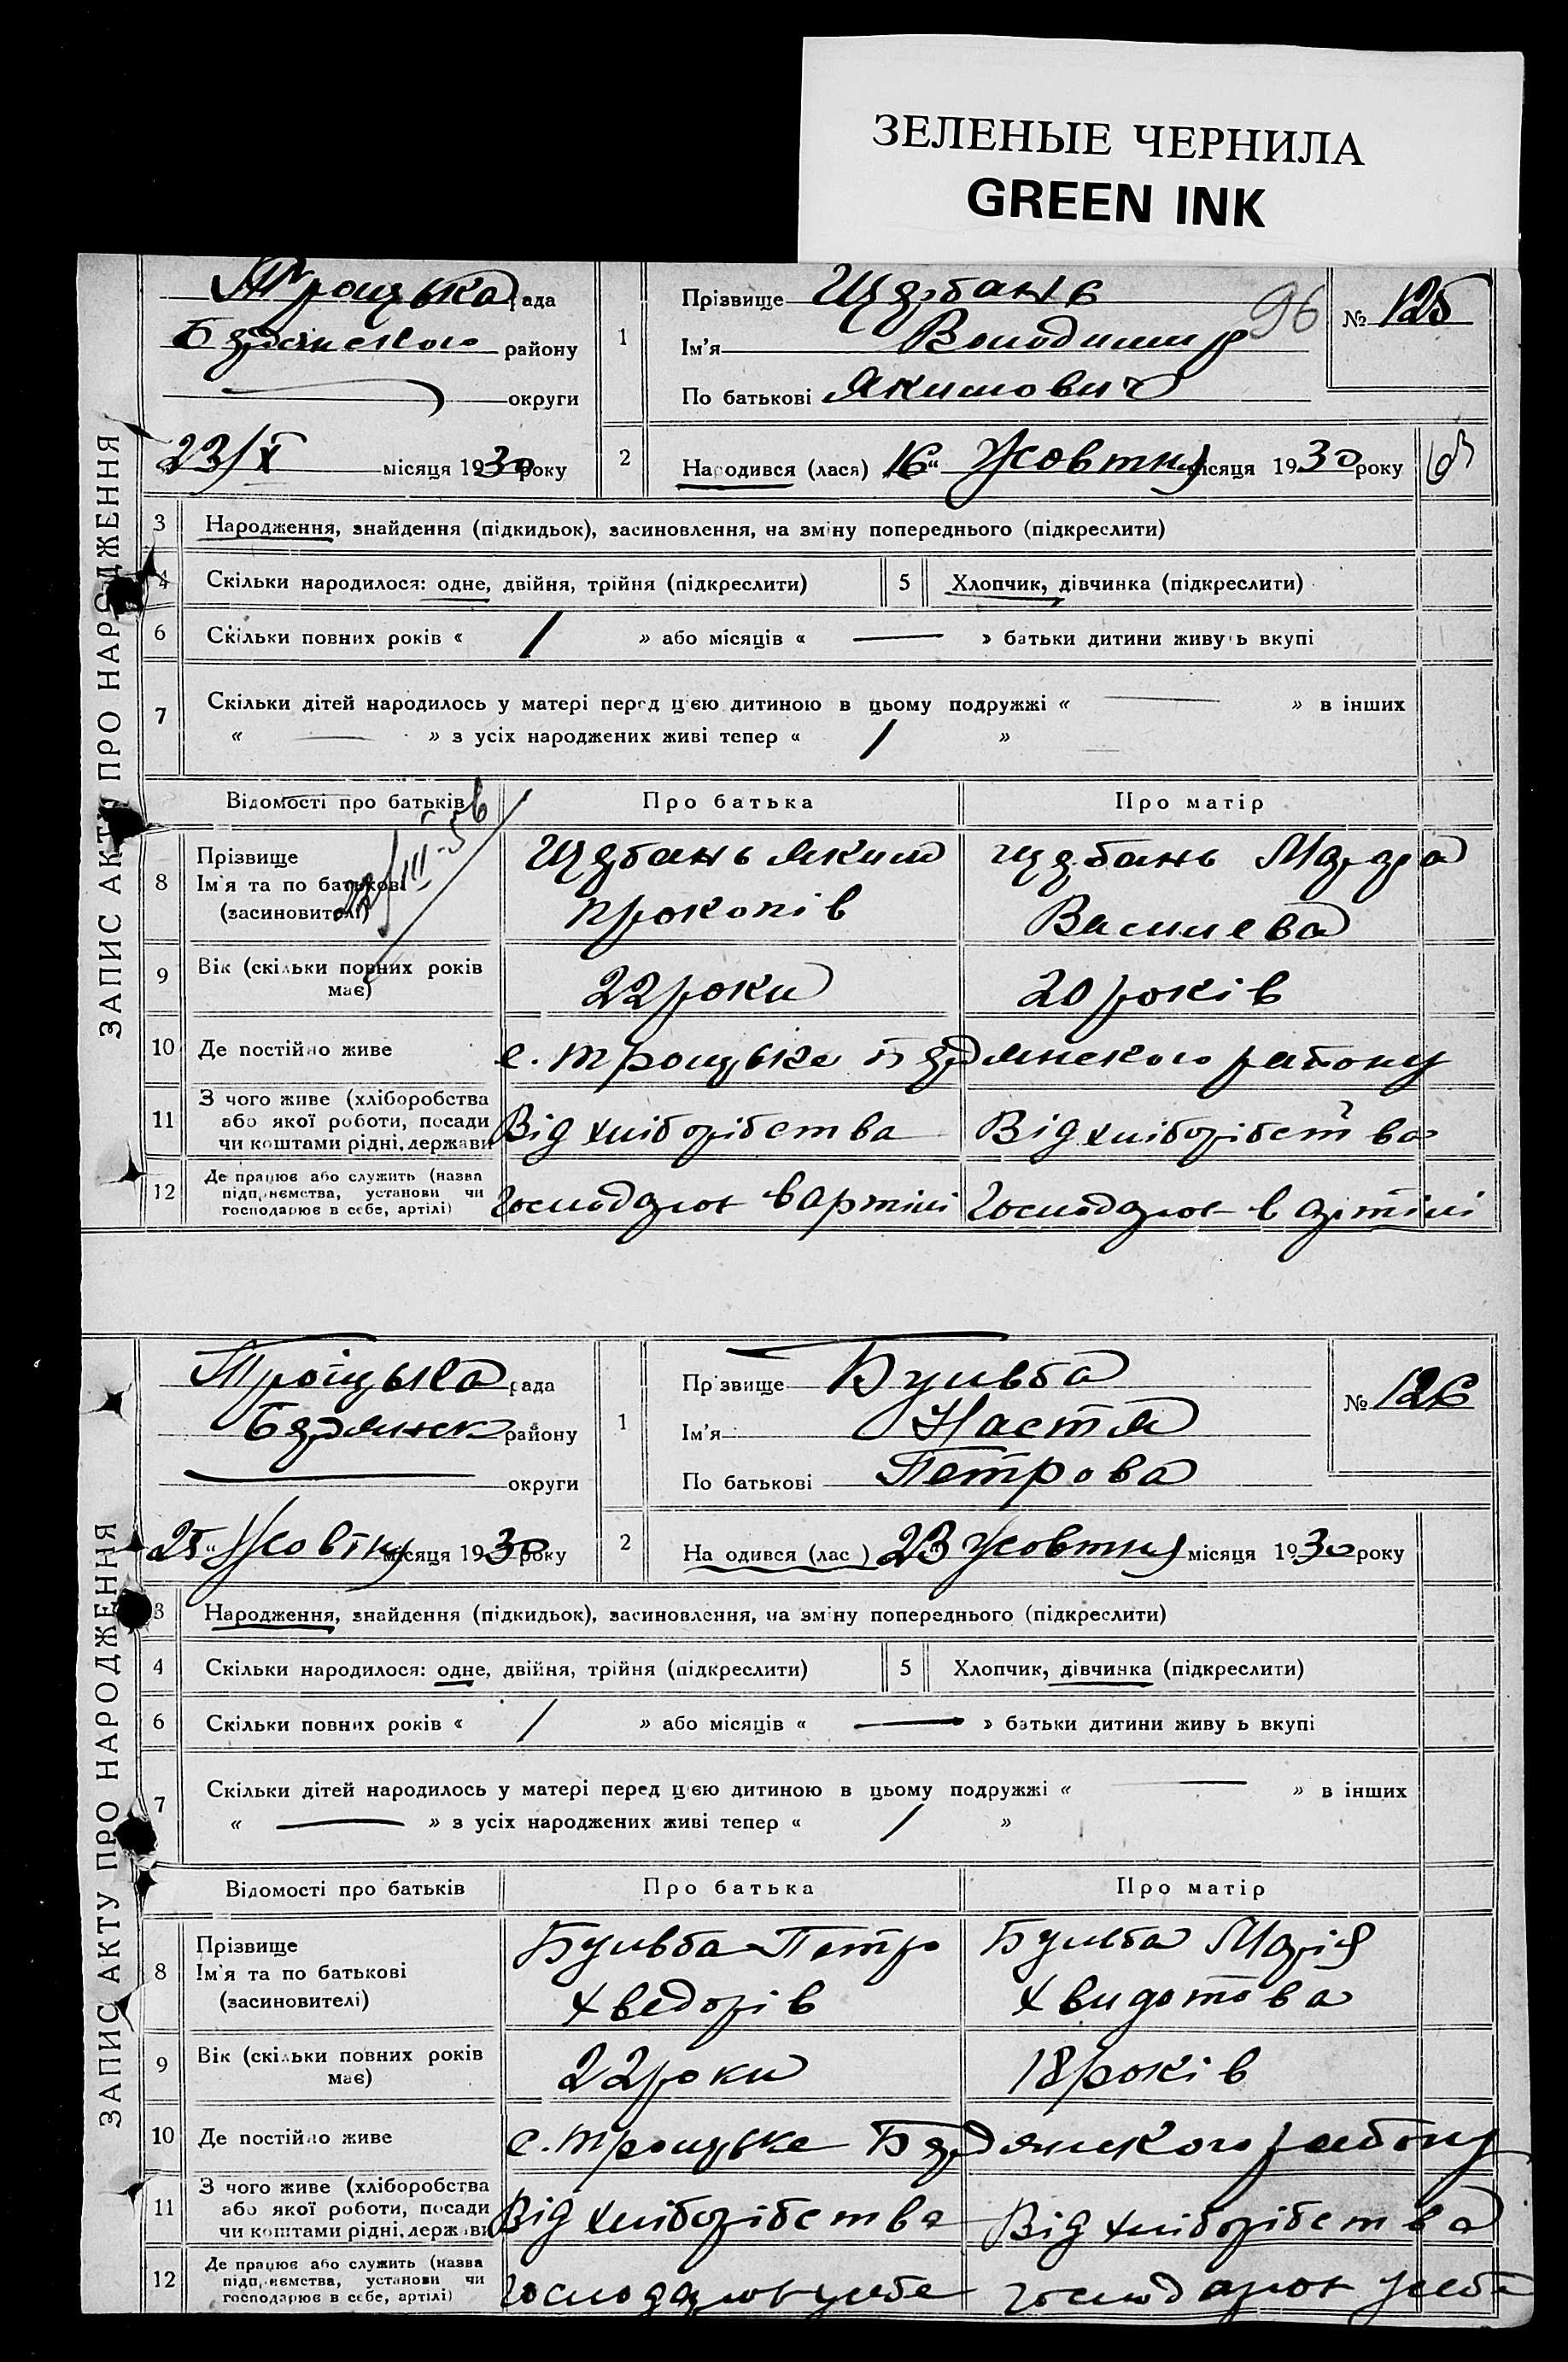 ЗЕЛЕНЫЕ ЧЕРНИЛА
GREEN INK
ЗАПИС АКТУ ПРО НАРОДЖЕННЯ
Троцька рада
Бердянського району
округи
23/X місяця 1930 року
1
Прізвище Щербань
Ім'я Володимир
По батькові Якимович
96
№ 125
2
Народився (лася) 16 „ Жовтня місяця 1930 року
3 Народження, знайдення (підкидьок), засиновлення, на зміну попереднього (підкреслити)
4 Скільки народилося: одне, двійня, трійня (підкреслити) 5 Хлопчик, дівчинка (підкреслити)
6 Скільки повних років « / » або місяців « — » батьки дитини живуть вкупі
7 Скільки дітей народилось у матері перед цією дитиною в цьому подружжі « — » в інших
« — » з усіх народжених живі тепер « / »
Відомості про батьків Про батька Про матір
8 Прізвище
Ім'я та по батькові
(засиновителі)
Щербань Яким
Прокопів
Щербань Марфа
Василева
9 Вік (скільки повних років
має)
22 роки 20 років
10 Де постійно живе с. Троцьке Бердянского району
11 З чого живе (хліборобства
або якої роботи, посади
чи коштами рідні, держави
Від хліборібства Від хліборібства
12 Де працює або служить (назва
підприємства, установи чи
господарює в себе, артілі)
Господарює в артілі Господарює в артілі
ЗАПИС АКТУ ПРО НАРОДЖЕННЯ
Троїцька рада
Бердянськ району
округи
25 „ Жовтня місяця 1930 року
1
Прізвище Бульба
Ім'я Настя
По батькові Петрова
№ 126
2
Народився (лася) 23 Жовтня місяця 1930 року
3 Народження, знайдення (підкидьок), засиновлення, на зміну попереднього (підкреслити)
4 Скільки народилося: одне, двійня, трійня (підкреслити) 5 Хлопчик, дівчинка (підкреслити)
6 Скільки повних років « / » або місяців « — » батьки дитини живуть вкупі
7 Скільки дітей народилось у матері перед цією дитиною в цьому подружжі « — » в інших
« — » з усіх народжених живі тепер « / »
Відомості про батьків Про батька Про матір
8 Прізвище
Ім'я та по батькові
(засиновителі)
Бульба Петро
Хведорів
Бульба Марія
Хвидотова
9 Вік (скільки повних років
має)
22 роки 18 років
10 Де постійно живе с. Троцьке Бердянского району
11 З чого живе (хліборобства
або якої роботи, посади
чи коштами рідні, держави
Від хліборібства Від хліборібства
12 Де працює або служить (назва
підприємства, установи чи
господарює в себе, артілі)
Господарює у себе Господарює у себе